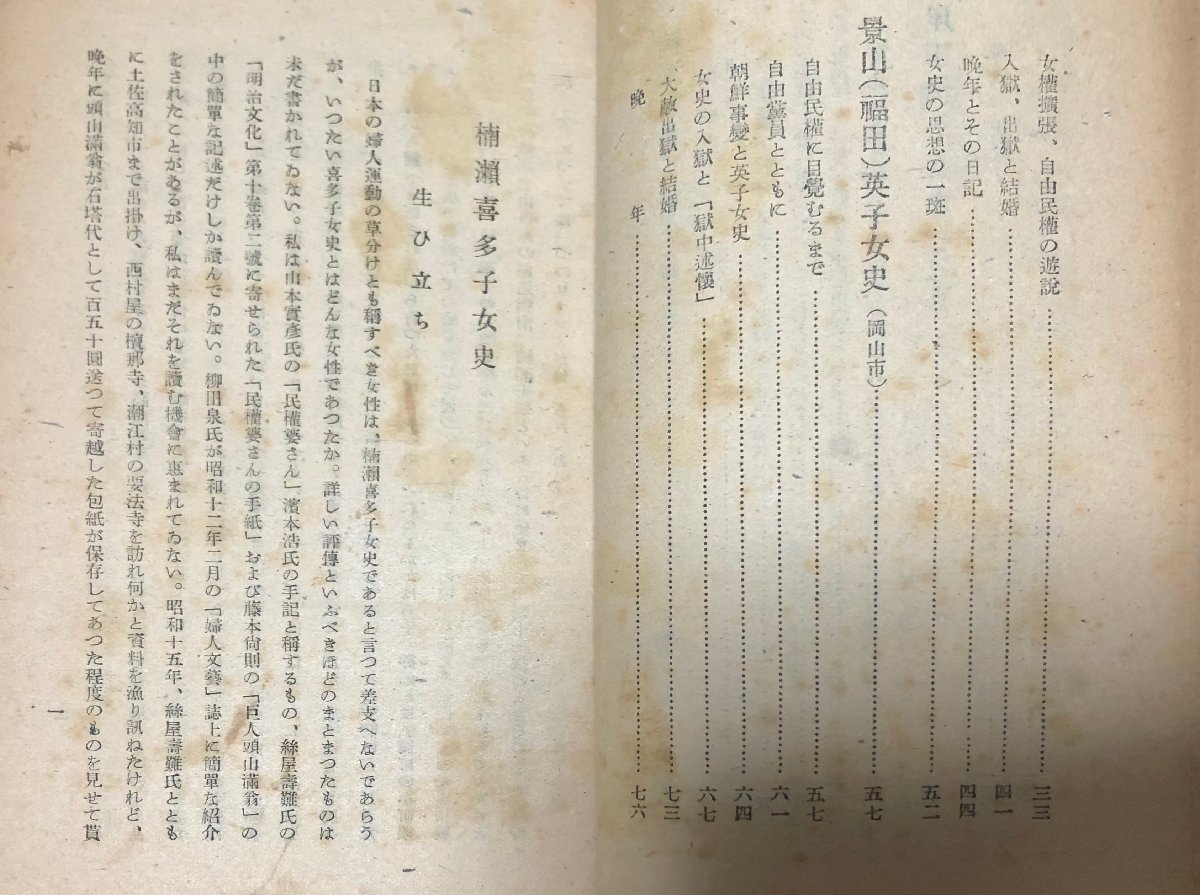 女權擴張、自由民權の遊說……三三
入獄、出獄と結婚……四一
晩年とその日記……四四
女史の思想の一斑……五二
景山(福田)英子女史(岡山市)……五七
自由民權に目覺むるまで……五七
自由黨員とともに……六一
朝鮮事變と英子女史……六四
女史の入獄と「獄中述懷」……六七
大赦出獄と結婚……七三
晩年……七六
楠瀨喜多子女史
生ひ立ち
日本の婦人運動の草分けとも稱すべき女性は、楠瀨喜多子女史であると言つて差支へないであらう
が、いつたい喜多子女史とはどんな女性であつたか。詳しい評傳といふべきほどのまとまつたものは
未だ書かれてゐない。私は山本實彥氏の「民權婆さん」濱本浩氏の手記と稱するもの、絲屋壽雄氏の
「明治文化」第十卷第二號に寄せられた「民權婆さんの手紙」および藤本尙則の「巨人頭山滿翁」の
中の簡單な記述だけしか讀んでゐない。柳田泉氏が昭和十二年二月の「婦人文藝」誌上に簡單な紹介
をされたことがあるが、私はまだそれを讀む機會に惠まれてゐない。昭和十五年、絲屋壽雄氏ととも
に土佐高知市まで出掛け、西村屋の檀那寺、潮江村の要法寺を訪れ何かと資料を漁り訊ねたけれど、
晩年に頭山滿翁が石塔代として百五十圓送つて寄越した包紙が保存してあつた程度のものを見せて貰
一